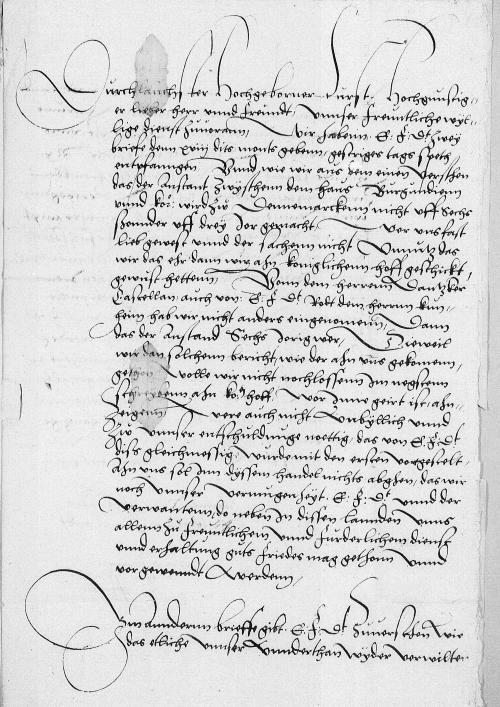 Durchlauchster Hochgeborner Furst, Hochgunstig-
er lieber herr unnd freundt, unnser freuntliche wyl-
lige dienst zuvorann, Wir habenn E. F. Dt zwey
brieffe denn xviij dits monts gebenn, gestriges tags speth
entpfanngen Unnd wie wir aus dem einen versthen
das der Anstant zwyschenn dem haus Burgundienn
unnd ko: wird zw Dennemarckenn nicht uff Sechs
sonnder uff drey Jor gemacht, Wer uns fast
lieb gewest unnd der sachenn nicht Unnutz das
wir das ehr dann wir ahn koniglichenn hoff geschickt,
gewust hettenn, Vonn dem herrenn Dantzker
Castellan auch von E. F. Dt Rodt dem herrnn Kun-
heim hab wir nicht anders eingenomenn, Dann
das der Anstand Sechs Jorig wer, Dieweil
wir dan solchenn bericht, wie der ahn uns gekomenn,
gethon, wolle wir nicht nochlossenn Im negstenn
schreybenn ahn ko: hoff, wor Inne geirt ist, ahn-
zeigenn, Were auch nicht Unbyllich unnd
zw unnser entschuldunge noettig, das von E. F. Dt
diss gleichmessig wurde mit den ersten vorgestelt,
Ahn uns sol Inn dyssem handel nichts abghen, das wir
noch unnser vermugenheyt E. F. Dt unnd der
verwantenn, so neben In dissen lannden unns
allenn zu freuntlichem unnd furderlichem dienst
unnd erhaltung guts friedes mag gethonn unnd
vorgewenndt werdenn,
Im anndernn brieffe gibt E. F. Dt zuversthen wie
das etliche unnser unnderthan wyder verwilter